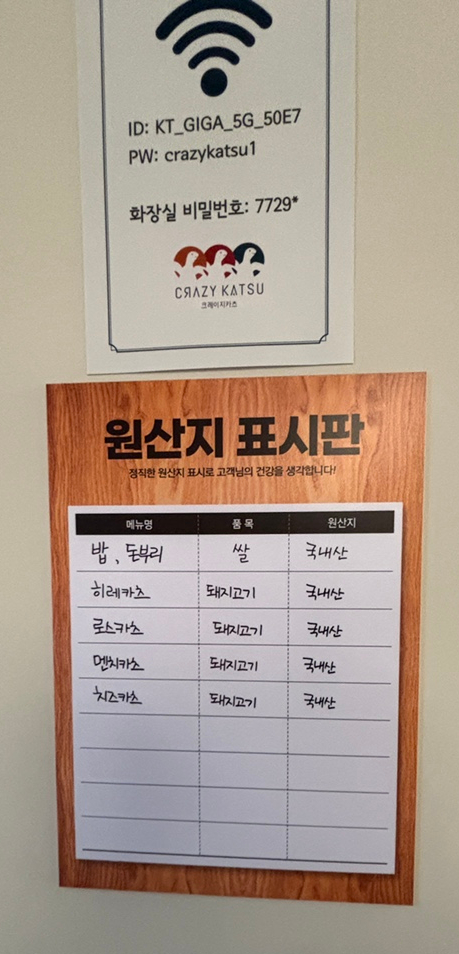 ID: KT_GIGA_5G_50E7
PW: crazykatsu1
화장실 비밀번호: 7729*
CRAZY KATSU
크레이지카츠
원산지 표시판
정직한 원산지 표시로 고객님의 건강을 생각합니다!
메뉴명 품 목 원산지
밥, 돈부리 쌀 국내산
히레카츠 돼지고기 국내산
로스카츠 돼지고기 국내산
멘치카츠 돼지고기 국내산
치즈카츠 돼지고기 국내산